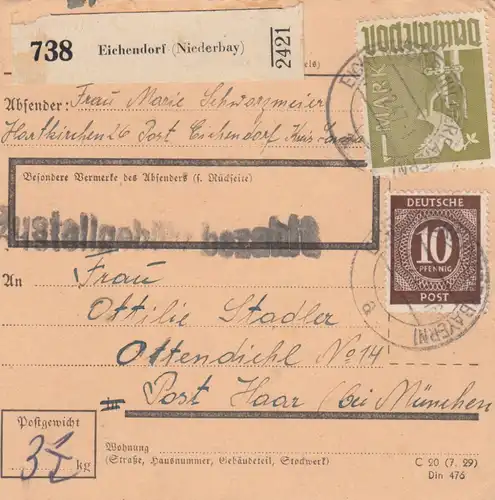 738 Eichendorf (Niederbay) 2421
Absender: Frau Marie Schwarzmeier
Hartkirchen 26 Post Eichendorf Kreis
Besondere Vermerke des Absenders (s. Rückseite)
Zustellgebühr bezahlt
1 MARK
DEUTSCHE
10
PFENNIG
POST
An Frau
Ottilie Stadler
Ottendichl No 14
Post Haar (bei München
Postgewicht
kg
Wohnung
(Straße, Hausnummer, Gebäudeteil, Stockwerk)
C 20 (7. 29)
Din 476